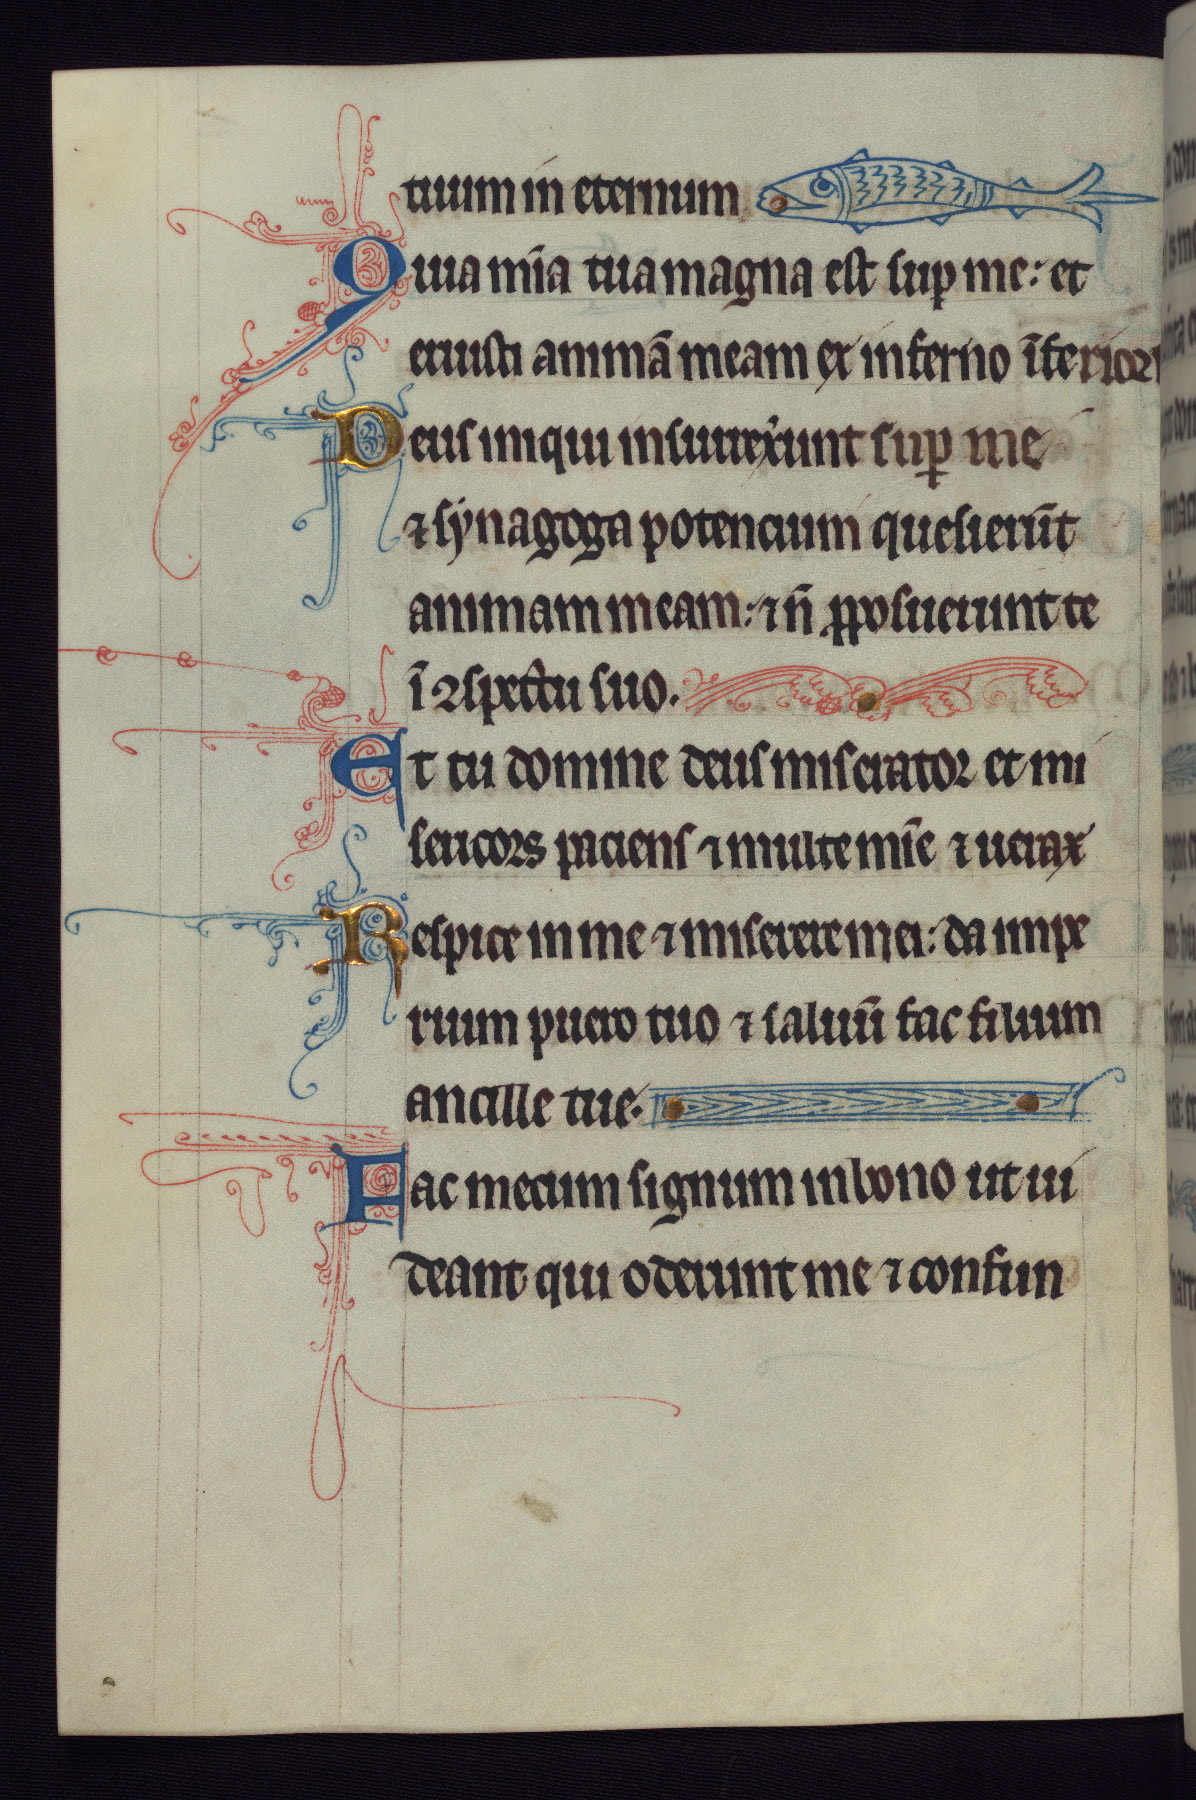 tuum in eternum
Quia mīa tua magna est sup me: et
eruisti animā meam ex inferno īferiori
Deus iniqui insurrexunt sup me
⁊ synagoga potencium quesierūt
animam meam: ⁊ n̄ pposuerunt te
ī ꝯspectu suo.
Et tu domine deus miserator et mi
sericors paciens ⁊ multe mīe ⁊ uerax
Respice in me ⁊ miserere mei: da impe
rium puero tuo ⁊ saluū fac filium
ancille tue.
Fac mecum signum in bono ut ui
deant qui oderunt me ⁊ confun